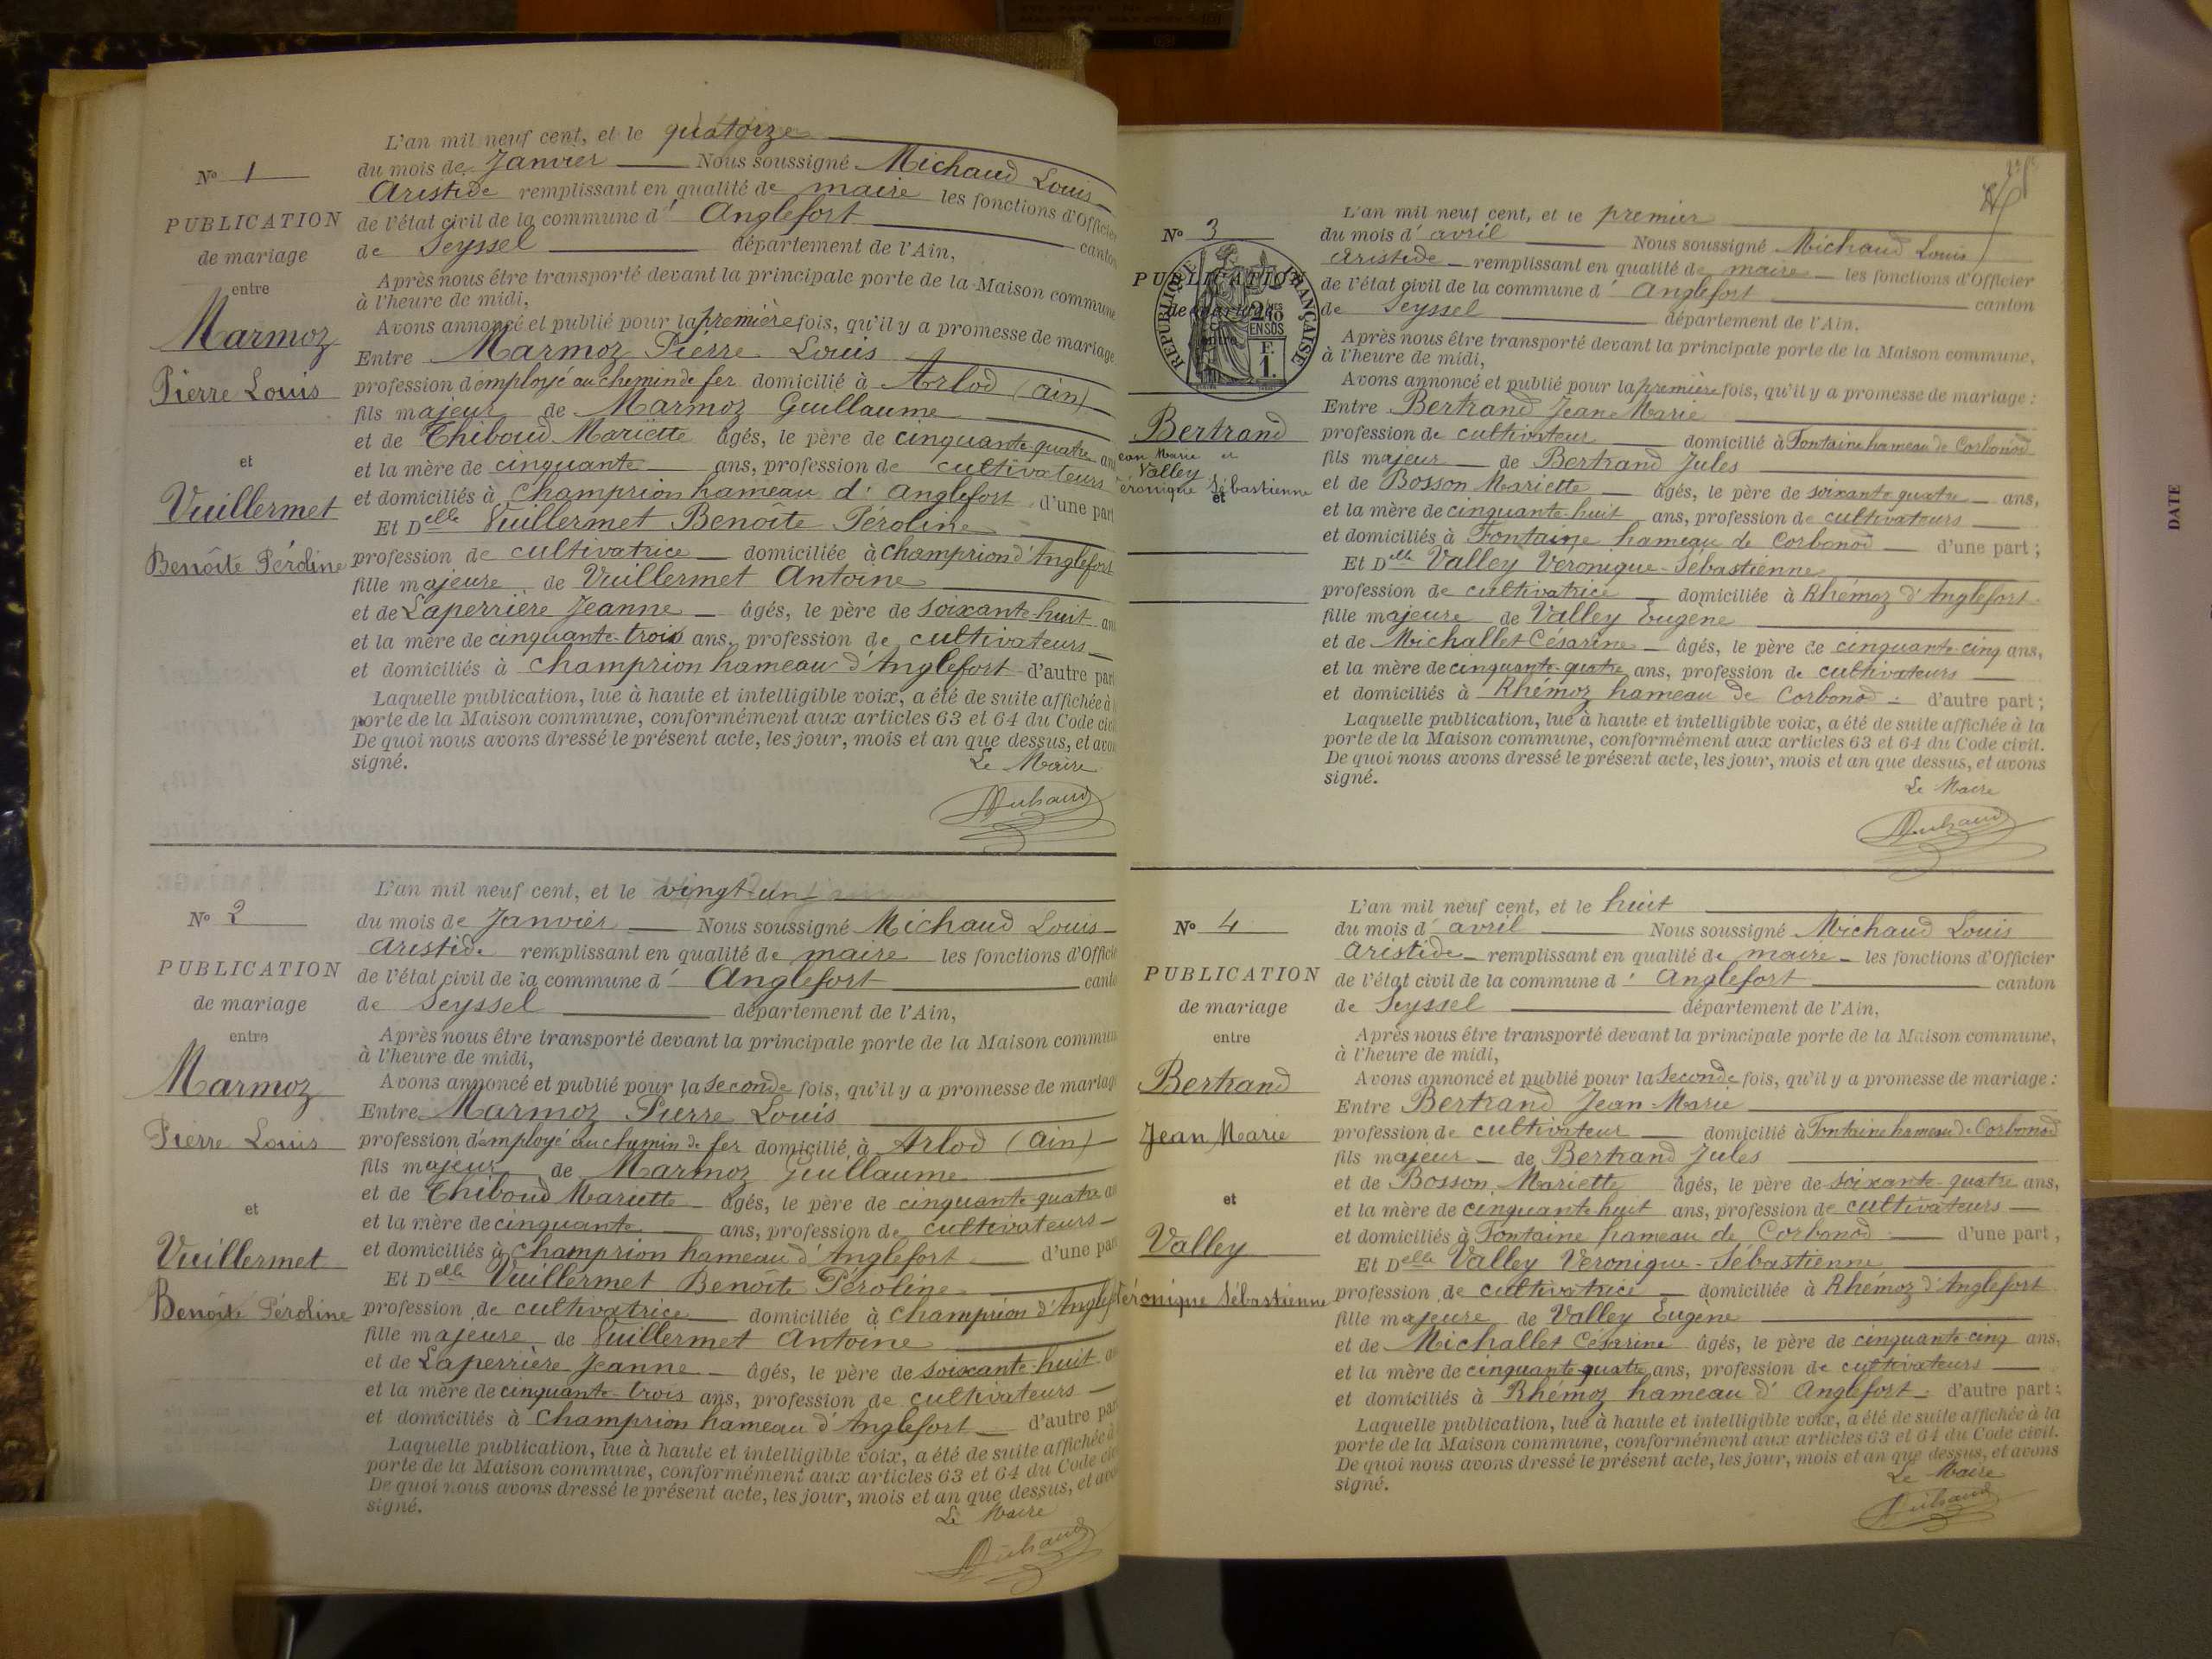 L'an mil neuf cent, et le quatorze
du mois de Janvier Nous soussigné Michaud Louis
Aristide remplissant en qualité de maire les fonctions d'Officier
de l'état civil de la commune d' Anglefort canton
de Seyssel département de l'Ain,
Après nous être transporté devant la principale porte de la Maison commune
à l'heure de midi,
Avons annoncé et publié pour la première fois, qu'il y a promesse de mariage
Entre Marmoz Pierre Louis
profession d'employé au chemin de fer domicilié à Arlod (Ain)
fils majeur de Marmoz Guillaume
et de Thiboud Mariette âgés, le père de cinquante quatre ans
et la mère de cinquante ans, profession de cultivateurs
et domiciliés à Champrion hameau d' Anglefort d'une part
Et Delle Vuillermet Benoîte Péroline
profession de cultivatrice domiciliée à Champrion d'Anglefort
fille majeure de Vuillermet Antoine
et de Laperrière Jeanne âgés, le père de soixante-huit ans
et la mère de cinquante-trois ans, profession de cultivateurs
et domiciliés à Champrion hameau d'Anglefort d'autre part
Laquelle publication, lue à haute et intelligible voix, a été de suite affichée à
porte de la Maison commune, conformément aux articles 63 et 64 du Code civil
De quoi nous avons dressé le présent acte, les jour, mois et an que dessus, et avons
signé.
Le Maire
Michaud
No 1
PUBLICATION
de mariage
entre
Marmoz
Pierre Louis
et
Vuillermet
Benoîte Péroline
L'an mil neuf cent, et le vingt-un
du mois de Janvier Nous soussigné Michaud Louis
Aristide remplissant en qualité de maire les fonctions d'Officier
de l'état civil de la commune d' Anglefort canton
de Seyssel département de l'Ain,
Après nous être transporté devant la principale porte de la Maison commune
à l'heure de midi,
Avons annoncé et publié pour la seconde fois, qu'il y a promesse de mariage
Entre Marmoz Pierre Louis
profession d'employé au chemin de fer domicilié à Arlod (Ain)
fils majeur de Marmoz Guillaume
et de Thiboud Mariette âgés, le père de cinquante-quatre ans
et la mère de cinquante ans, profession de cultivateurs
et domiciliés à Champrion hameau d'Anglefort d'une part
Et Delle Vuillermet Benoîte Péroline
profession de cultivatrice domiciliée à Champrion d'Anglefort
fille majeure de Vuillermet Antoine
et de Laperrière Jeanne âgés, le père de soixante-huit ans
et la mère de cinquante-trois ans, profession de cultivateurs
et domiciliés à Champrion hameau d'Anglefort d'autre part
Laquelle publication, lue à haute et intelligible voix, a été de suite affichée à
porte de la Maison commune, conformément aux articles 63 et 64 du Code civil
De quoi nous avons dressé le présent acte, les jour, mois et an que dessus, et avons
signé.
Le Maire
Michaud
No 2
PUBLICATION
de mariage
entre
Marmoz
Pierre Louis
et
Vuillermet
Benoîte Péroline
L'an mil neuf cent, et le premier
du mois d' avril Nous soussigné Michaud Louis
Aristide remplissant en qualité de maire les fonctions d'Officier
de l'état civil de la commune d' Anglefort canton
de Seyssel département de l'Ain,
Après nous être transporté devant la principale porte de la Maison commune,
à l'heure de midi,
Avons annoncé et publié pour la première fois, qu'il y a promesse de mariage :
Entre Bertrand Jean Marie
profession de cultivateur domicilié à Fontaine hameau de Corbonod
fils majeur de Bertrand Jules
et de Bosson Mariette âgés, le père de soixante quatre ans,
et la mère de cinquante-huit ans, profession de cultivateurs
et domiciliés à Fontaine hameau de Corbonod d'une part ;
Et Delle Valley Veronique-Sébastienne
profession de cultivatrice domiciliée à Rhémoz d'Anglefort
fille majeure de Valley Eugène
et de Michallet Césarine âgés, le père de cinquante-cinq ans,
et la mère de cinquante-quatre ans, profession de cultivateurs
et domiciliés à Rhémoz hameau de Corbonod d'autre part ;
Laquelle publication, lue à haute et intelligible voix, a été de suite affichée à la
porte de la Maison commune, conformément aux articles 63 et 64 du Code civil.
De quoi nous avons dressé le présent acte, les jour, mois et an que dessus, et avons
signé.
Le Maire
Michaud
No 3
PUBLICATION
de mariage
entre
RÉPUBLIQUE FRANÇAISE
2/10 EN SUS
F. 1.
Bertrand
Jean Marie et
Valley
Véronique Sébastienne
et
L'an mil neuf cent, et le huit
du mois d' avril Nous soussigné Michaud Louis
Aristide remplissant en qualité de maire les fonctions d'Officier
de l'état civil de la commune d' Anglefort canton
de Seyssel département de l'Ain,
Après nous être transporté devant la principale porte de la Maison commune,
à l'heure de midi,
Avons annoncé et publié pour la seconde fois, qu'il y a promesse de mariage :
Entre Bertrand Jean-Marie
profession de cultivateur domicilié à Fontaine hameau de Corbonod
fils majeur de Bertrand Jules
et de Bosson Mariette âgés, le père de soixante-quatre ans,
et la mère de cinquante huit ans, profession de cultivateurs
et domiciliés à Fontaine hameau de Corbonod d'une part ;
Et Delle Valley Veronique-Sébastienne
profession de cultivatrice domiciliée à Rhémoz d'Anglefort
fille majeure de Valley Eugène
et de Michallet Césarine âgés, le père de cinquante-cinq ans,
et la mère de cinquante quatre ans, profession de cultivateurs
et domiciliés à Rhémoz hameau d' Anglefort d'autre part ;
Laquelle publication, lue à haute et intelligible voix, a été de suite affichée à la
porte de la Maison commune, conformément aux articles 63 et 64 du Code civil.
De quoi nous avons dressé le présent acte, les jour, mois et an que dessus, et avons
signé.
Le Maire
Michaud
No 4
PUBLICATION
de mariage
entre
Bertrand
Jean Marie
et
Valley
Véronique Sébastienne
DATE